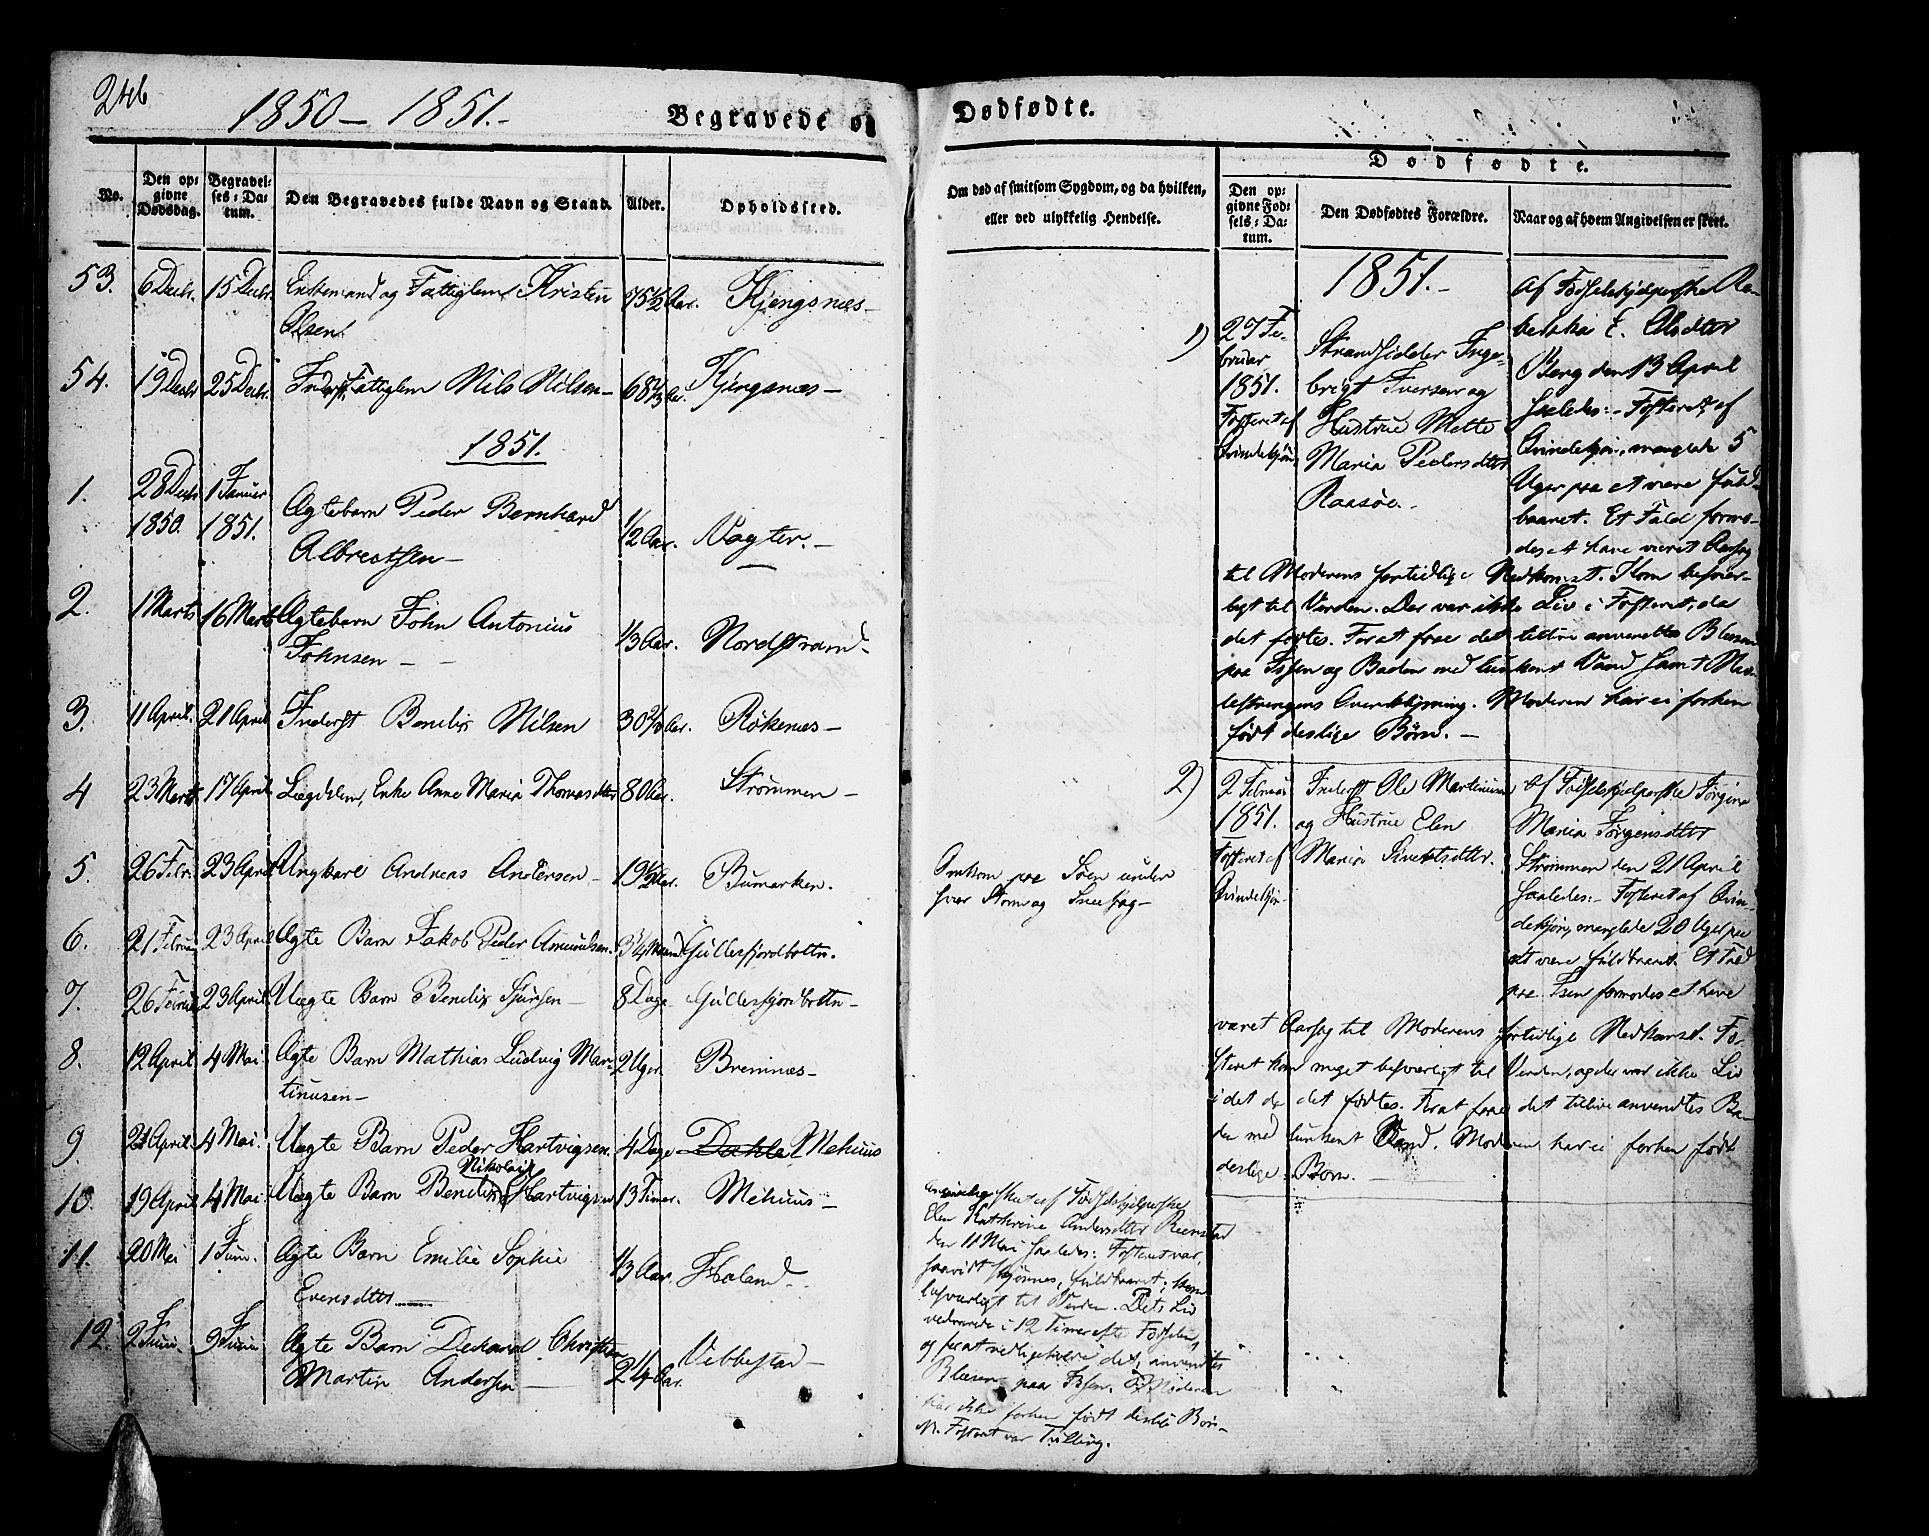 246
1850 – 1851.
Begravede og
No.
Den opgivne Dødsdag.
Begravelses-Datum.
Den Begravedes fulde Navn og Stand.
Alder.
Opholdssted.
53. 6 Decbr. 15 Decbr. Enkemand og Fattiglem Kristen 75½ Aar. Kjengsnæs –
Olsen.
54. 19 Decbr 25 Decbr. Inderst, Fattiglem Nils Nilsen – 68 Aar. Kjengsnæs –
1851.
1. 28 Decbr 1850. 1 Januar 1851. Ægtebarn Peder Bernhard
Albrectsen – ½ Aar. Vogter. –
2. 1 Marts 16 Marts Ægtebarn John Antonius
Johnsen – – ⅓ Aar. Nordstrand –
3. 11 April. 21 April Inderst Bendix Nilsen 30 Aar. Rökenæs –
4 23 Marts 17 April. Lægdslem, Enke Anne Maria Thomasdtter 80 Aar. Strömmen –
5. 26 Febr. 23 April Ungkarl Andreas Andersen – 19½ Aar. Bumarken.
6. 21 Februar 23 April Ægte Barn Jakob Peder Amundsen. 3¼ Maaned Gullesfjordbottn.
7. 26 Februar 23 April. Uægte Barn Bendix Sjursen – 8 Dage – Gullesfjordbottn –
8. 12 April 4 Mai Ægte Barn Mathias Ludvig Mar- 2 Uger. Bremnæs –
tinusen –
9. 21 April 4 Mai. Uægte Barn Peder Hartvigsen. 4 Dage – Dahle Mehuus
10. 19 April 4 Mai Uægte Barn Bendix Nikolai Hartvigsen 13 Timer. Mehuus –
11. 20 Mai 1 Juni. Ægte Barn Emilie Sophie
Evensdtter ⅓ Aar. Holand –
12. 2 Juni 9 Juni Ægte Barn Dekard Christian
Martin Andersen – 2¼ Aar. Vebbestad –
Dødfødte.
Om død af smitsom Sygdom, og da hvilken,
eller ved ulykkelig Hendelse.
Omkom paa Søen under
svær Storm og Sneefog –
skeet af Fødselshjelperske
Elen Kathrine Andersdtter Reenstad
den 11 Mai saaledes: Fosteret var,
saavidt skjønnes, fuldbaaret; kom
besværligt til Verden. Dets Liv
vedvarede i 12 Timer efter Fødselen,
og for at vedligeholde det, anvendtes
Blæsen paa Issen. Moderen
har ikke forhen født deslige Børn
NB. Fosteret var Tvilling.
Dødfødte.
Den opgivne Fødsels-Datum.
Den Dødfødtes Forældre.
Naar og af hvem Angivelsen er skeet.
1851. –
1)
27 Februar
1851.
Fosteret af
Qvindekjøn
Strandsidder Inge-
brigt Iversen og
Hustrue Mette
Maria Pedersdtter
Raasøe. –
Af Fødselshjelperske Re-
bekka E. Olsdtter
Berg den 13 April
saaledes: – Fosteret, af
Qvindekjøn, manglede 5
Uger paa at være fuld-
baaret. Et Fald formo-
des at have været Aarsag
til Moderens fortidlige Nedkomst. Kom besvær-
ligt til Verden. Der var ikke Liv i Fosteret, da
det fødtes. For at faae det tillive anvendtes Blæsen
paa Issen og Baden med lunkent Vand samt Nav-
lestrengens Overklipning. Moderen har ei forhen
født deslige Børn. –
2)
2 Februar
1851.
Fosteret af
Qvindekjøn
Inderst Ole Martinusen
og Hustrue Elen
Maria Sivertsdtter.
Af Fødselshjelperske Jørgine
Maria Jørgensdtter
Strømmen den 21 April
saaledes: – Fosteret af Qvin-
dekjøn, manglede 20 Uger paa
at være fuldbaaret. Et Fald
paa Isen formodes at have
været Aarsag til Moderens fortidlige Nedkomst. Fo-
steret kom meget besværligt til Verden, og der var ikke Liv
i det da det fødtes. For at faae det tillive anvendtes Ba-
den med lunkent Vand. Moderen har ei forhen født
deslige Børn. –